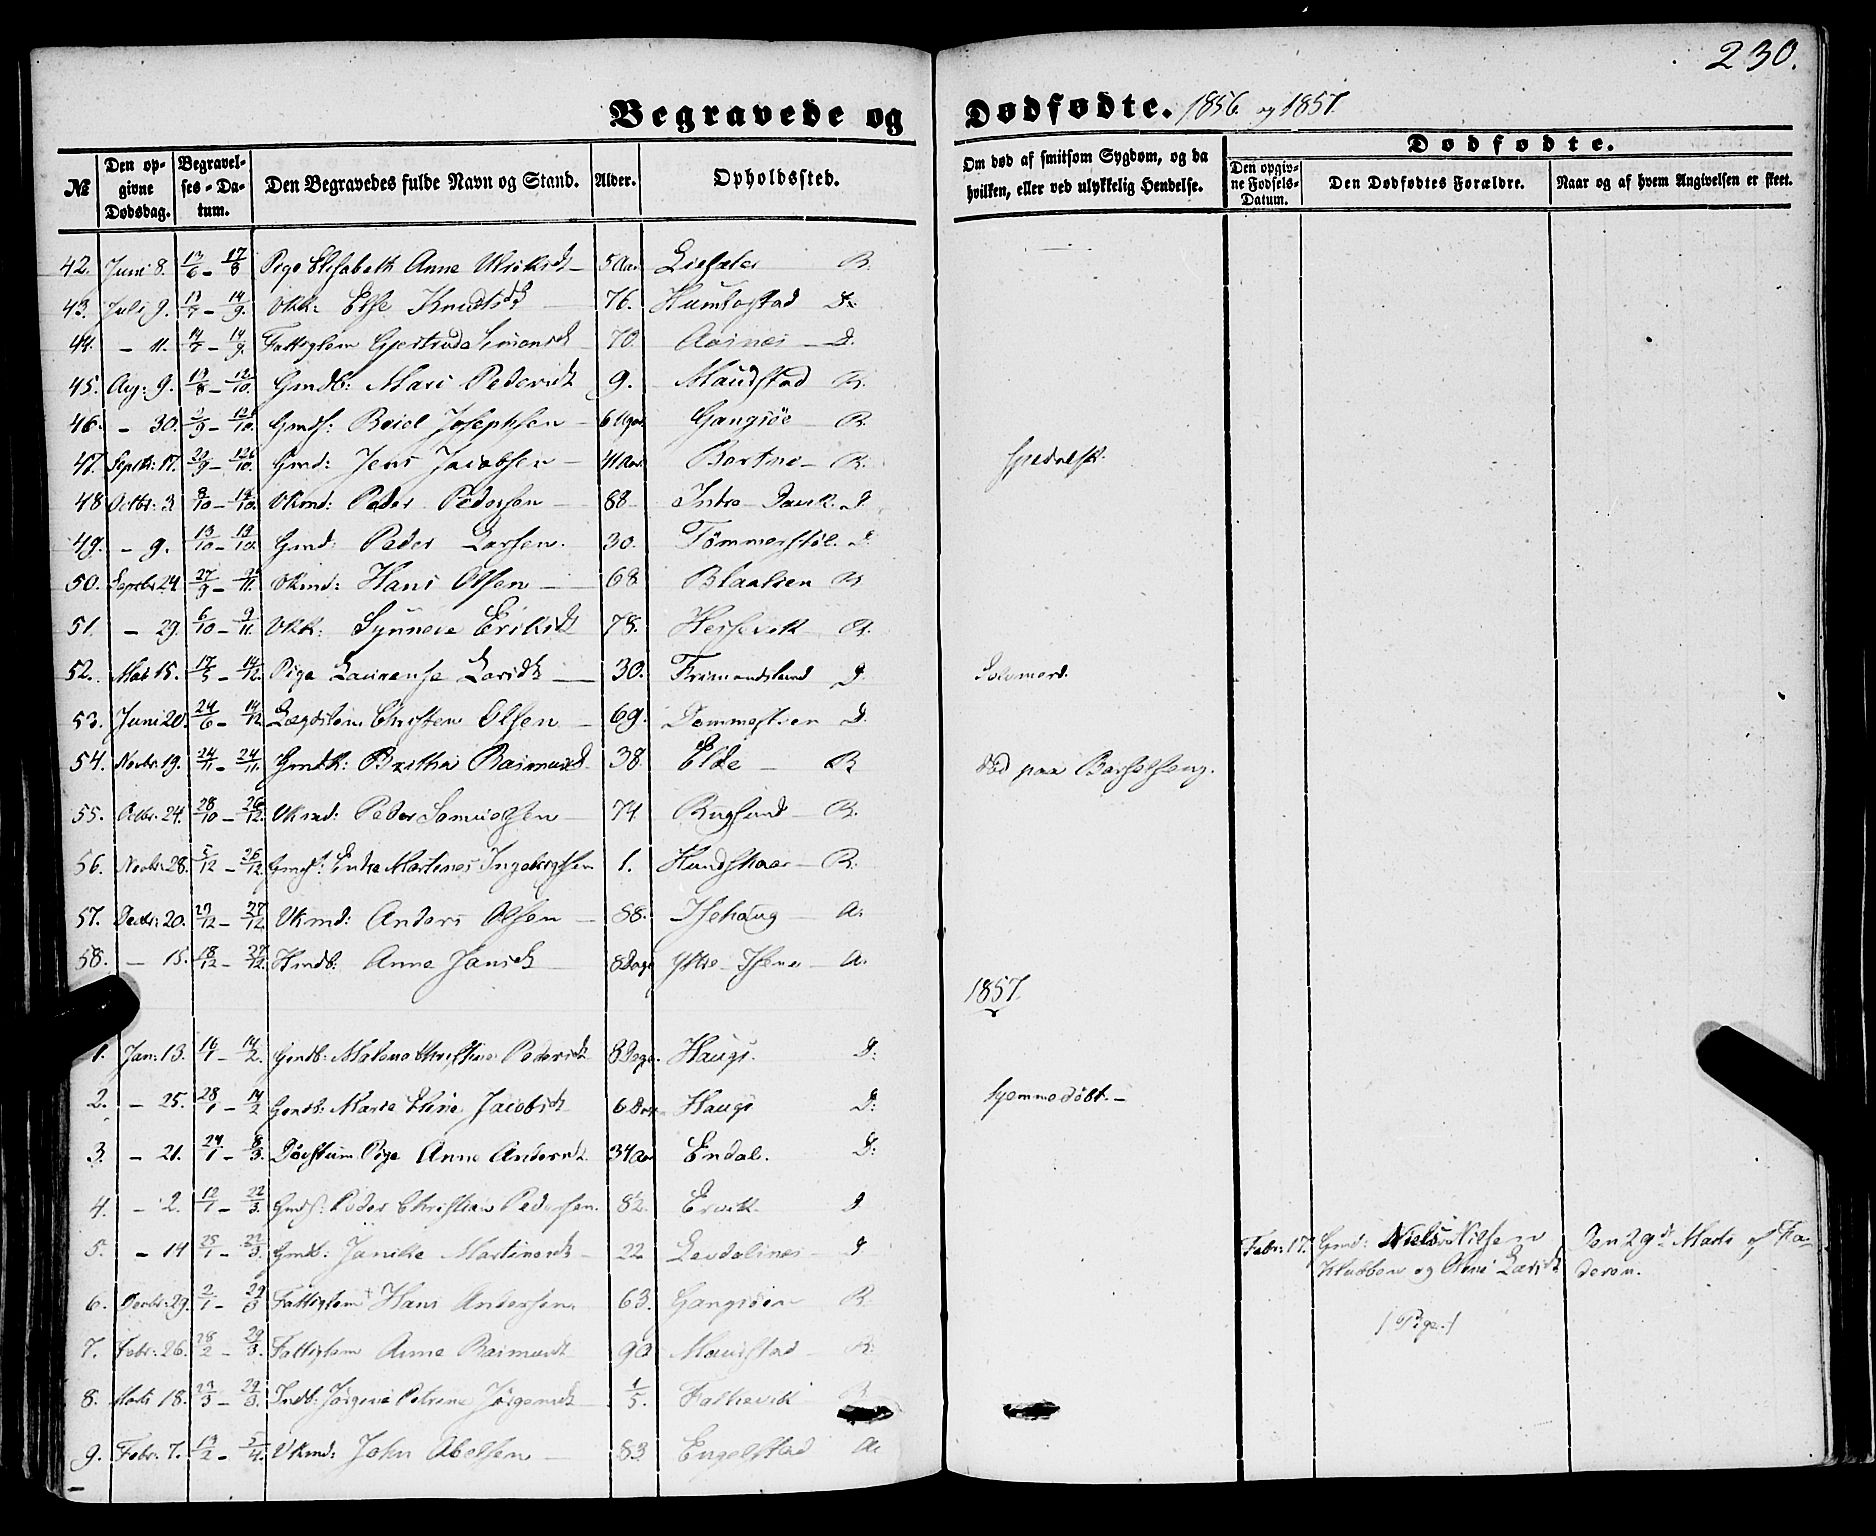 230.
Begravede og Dødfødte. 1856 og 1857.
№ Den opgivne Dødsdag. Begravelses-Datum. Den Begravedes fulde Navn og Stand. Alder. Opholdssted. Om død af smitsom Sygdom, og da hvilken, eller ved ulykkelig Hendelse. Dødfødte.
Den opgivne Fødsels-Datum. Den Dødfødtes Forældre. Naar og af hvem Angivelsen er skeet.
42. Juni 8. 13/6 - 17/8 Pige Elisabeth Anne 5 Aar R.
43. Juli 9. 13/7 - 14/9. Vkk: Else Knudsd 76. D.
44. - 11. 14/7 - 14/9. Fattiglem Gjertrud Simonsd 70. D.
45. Aug: 9. 13/8 - 12/10. Gmdb: Mari Pedersd 9. Maurstad R.
46. - 30. 2/9 - 12/10. Gmds: Josephsen Gangsøe R.
47. Septb: 17. 20/9 - 12/10. Gmd: Jens Jacobsen 41 Aar R. spedalsk.
48 Octbr: 3 8/10 - 10. Vkmd: Peder Pedersen 88 D
49. - 9. 13/10 - 19/10. Gmd: Peder Larsen. 30. Tømmerstøl. D.
50. Septbr 24 27/9 - 11. Vkmd: Hans Olsen 68 Blaalien R
51. - 29. 6/10 - 9/11. Vkk: Synneve Eriksd 78. Hessevik R.
52. Mai 15. 17/5 - 14/12. Pige Laurense Larsd 30. Frimandslund D. Selvmord.
53. Juni 20. 24/6 - 14/12 Lægdslem Christen Olsen 69. Dommestien D.
54. Novbr 19. 24/11 - 24/11. Gmdk: Brithe Rasmusd. 38. Elde R død paa Barselseng.
55. Octbr. 24. 28/10 - 26/12. Vkmd: Peder Samuelsen 74 Rugsund R.
56. Novbr: 28. 5/12 - 26/12. Gmds: Endre Martinus Ingebrigtsen 1. Hundskaar R.
57. Decbr: 20. 12 - 27/12. Vkmd: Anders Olsen 88. Isehaug A.
58. - 15. 18/12 - 27/12. Anne Jansd 8 Dage Ytre - A.
1857.
1. Jan: 13. 16/1 - 14/2. Gmdb: Malene Christine Pedersd 8 Dage. Hauge. D:
2. - 25. 28/1 - 14/2 Gmdb: Marie Eline Jacobsd 6 Hauge D: hjemmedøbt.
3. - 21. 24/1 - 8/3. Døvstum Pige Anne Andersd. 34 Aar Endal. D:
4. - 2. 12/1 - 22/3. Gmds: Peder Christian Pedersen. 8½. Ervik D
5. - 14 25/1 - 22/3. Gmdb: Janikke Martinusd 22 Levdalines D
Febr: 17. Gmd: Niels Nilsen Klubben og Anne Larsd Den 29de Marts af Faderen.
/Pige./
6. Decbr: 29. 2/1 - 29/3 Fattiglem Hans Andersen. 63. Gangsøen R
7. Febr: 26. 28/2 - 29/3. Fattiglem Anne Rasmusd 90 Maurstad R.
8. Marts 18. 23/3 - 29/3. Indb: Jørgine Petrine Jørgensd 1/5. R
9. Febr: 7. 13/2 - 5/4. Vkmd: John Abelsen 83 Engelstad A.